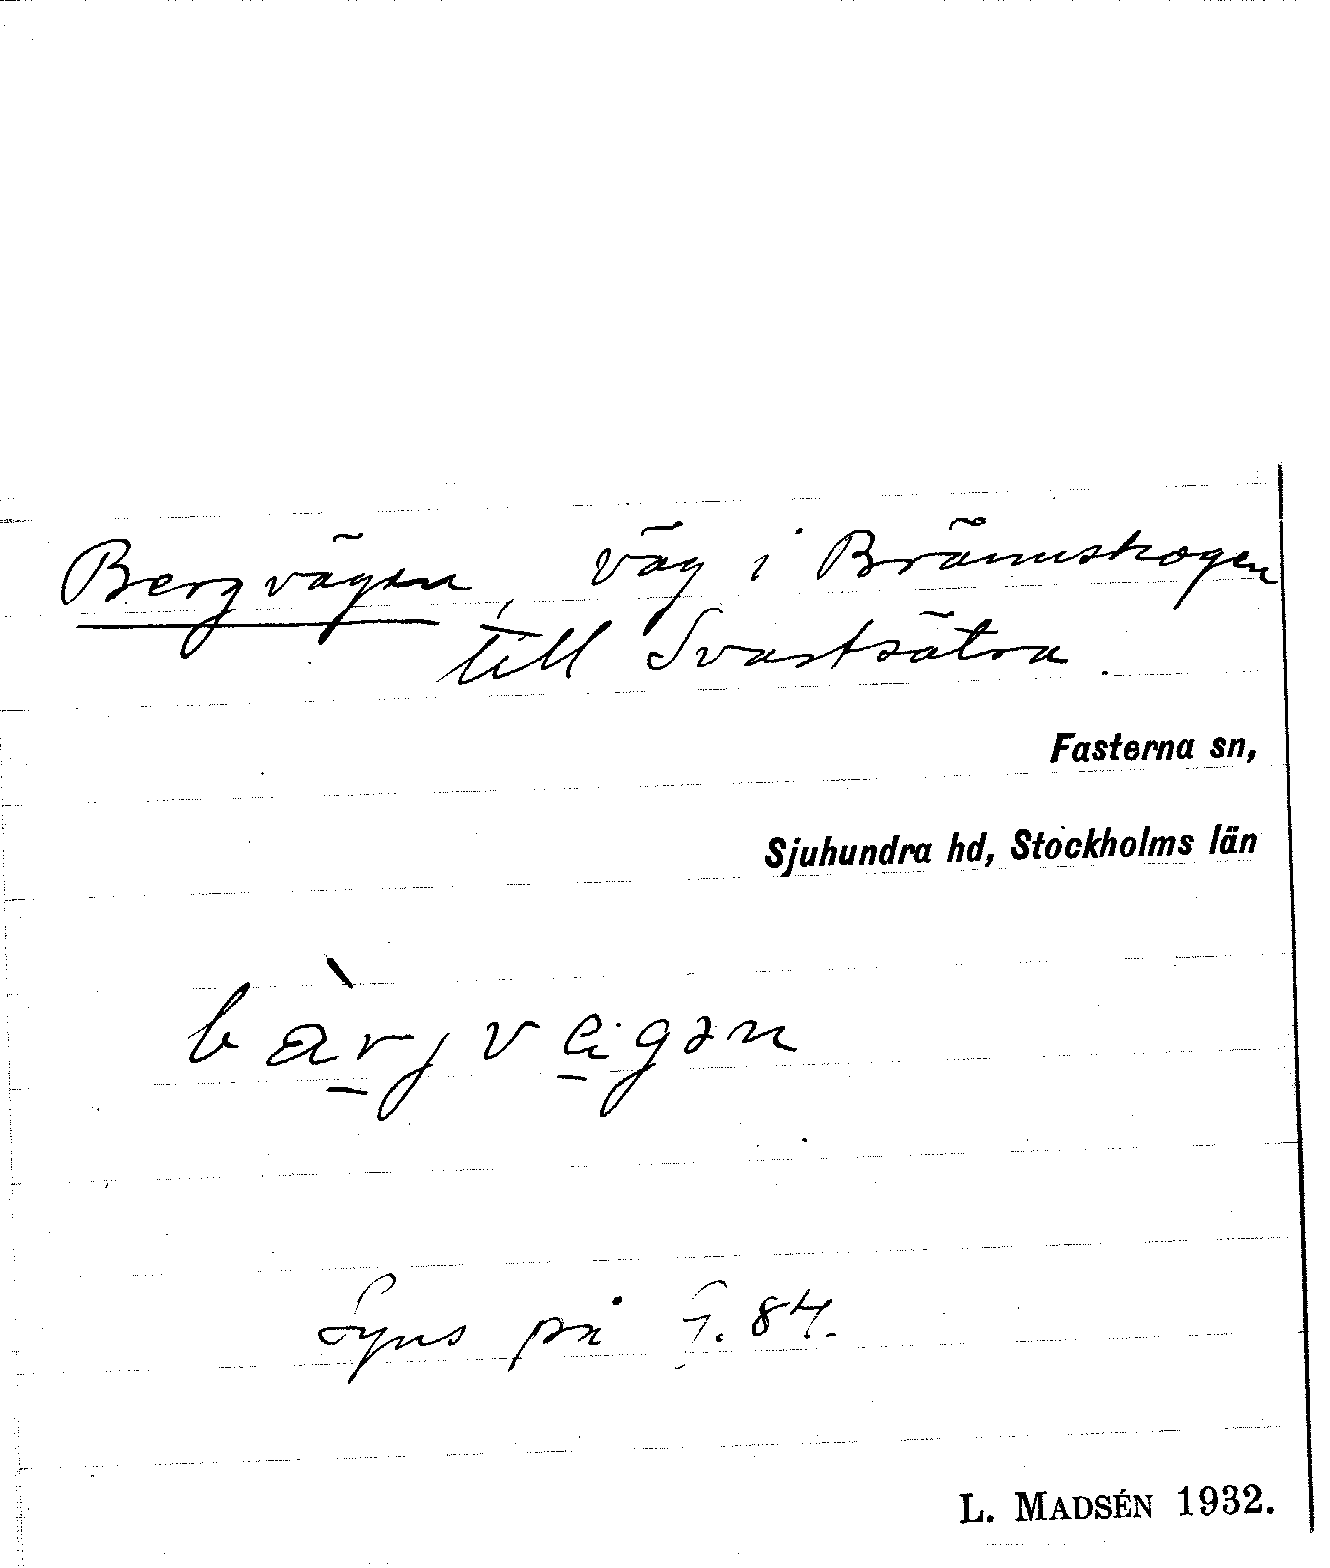 Bergvägen, väg i Brännskogen
till Svartsätra.
Fasterna sn,
Sjuhundra hd, Stockholms län
bàrjvägən
Syns på G. 84.
L. MADSÉN 1932.